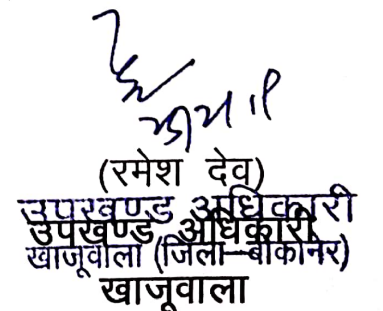 (रमेश देव)
उपखण्ड अधिकारी
उपखण्ड अधिकारी
खाजूवाला (जिला-बीकानेर)
खाजूवाला